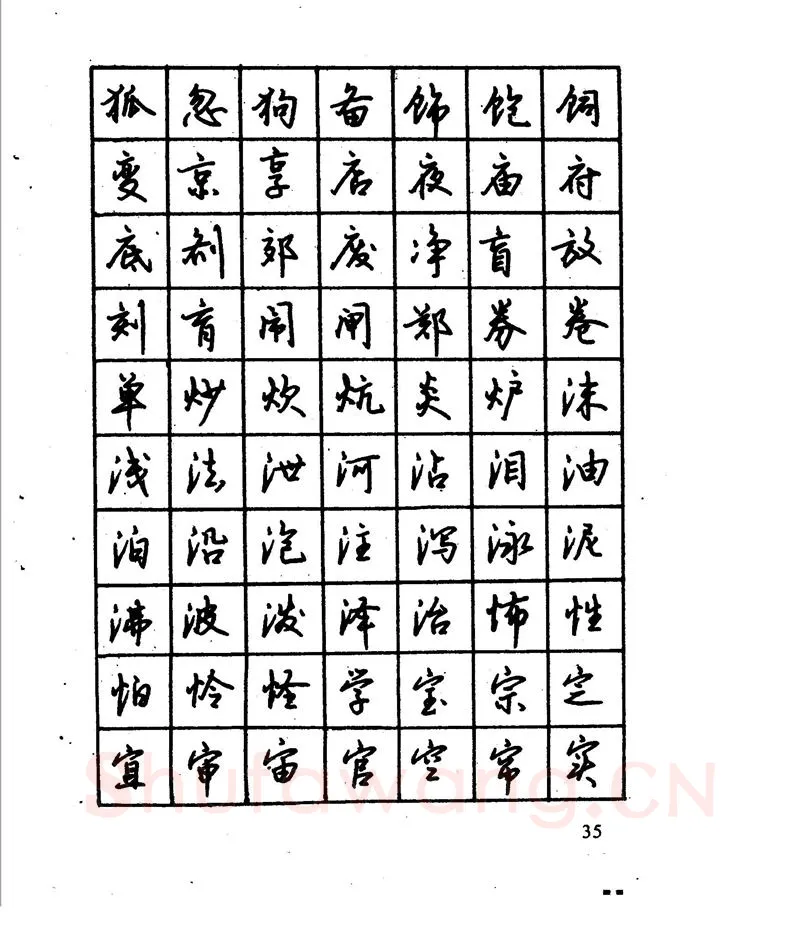 狐忽狗备饰饱饲
变京享店夜庙府
底剂郊废净盲放
刻育闹闸郑券卷
单炒炊炕炎炉沫
浅法泄河沾泪油
泊沿泡注泻泳泥
沸波泼泽治怖性
怕怜怪学宝宗定
宜审宙官空帘实
Shufawang.CN
35